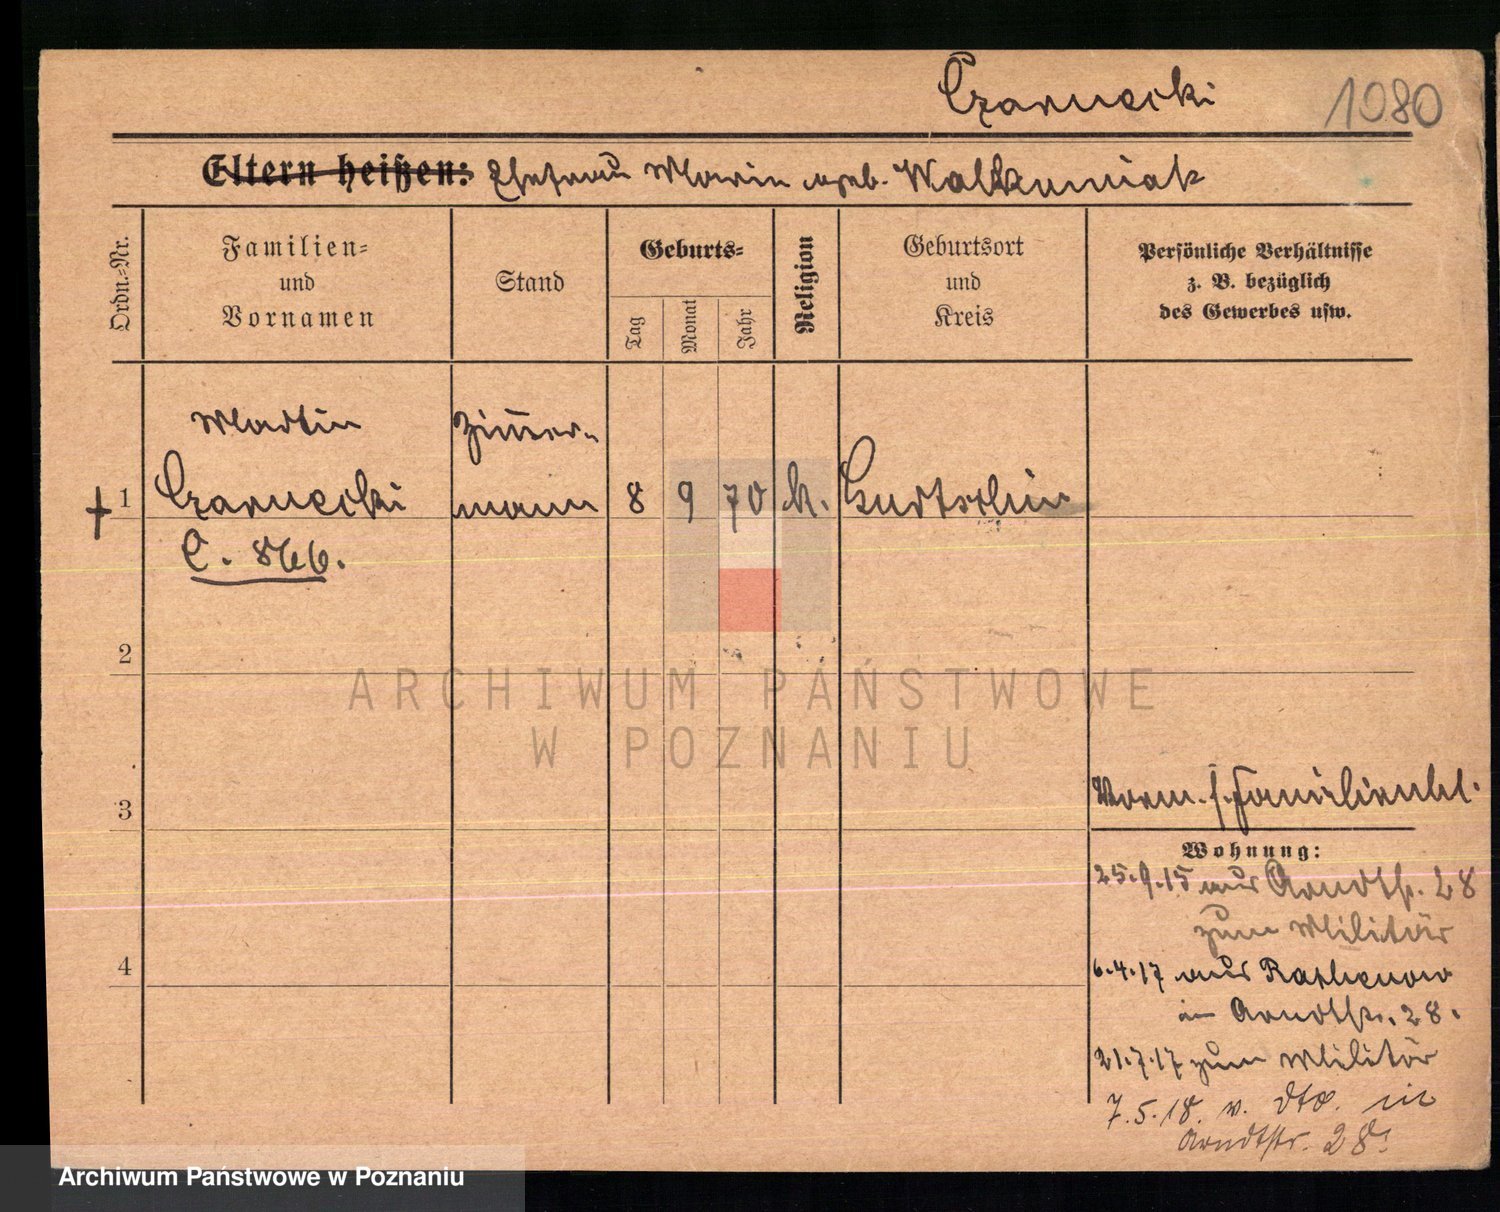 Czarnecki 1080
Eltern heißen: Ehefrau Marie geb. Walkowiak
Ordn.-Nr.
Familien-
und
Vornamen
Stand
Geburts-
Tag
Monat
Jahr
Religion
Geburtsort
und
Kreis
Persönliche Verhältnisse
z. B. bezüglich
des Gewerbes usw.
Martin Zimer-
1 Czarnecki mann 8 9 70 k. Gurtschin
C. 866.
2
ARCHIWUM PAŃSTWOWE
W POZNANIU
3
Vorm. s. Familienbl.
Wohnung:
25.9.15 aus Arndtstr. 28
zum Militär
4
6.4.17 aus Rathenow
in Arndtstr. 28.
21.7.17 zum Militär
7.5.18 v. dto. in
Arndtstr. 28.
Archiwum Państwowe w Poznaniu